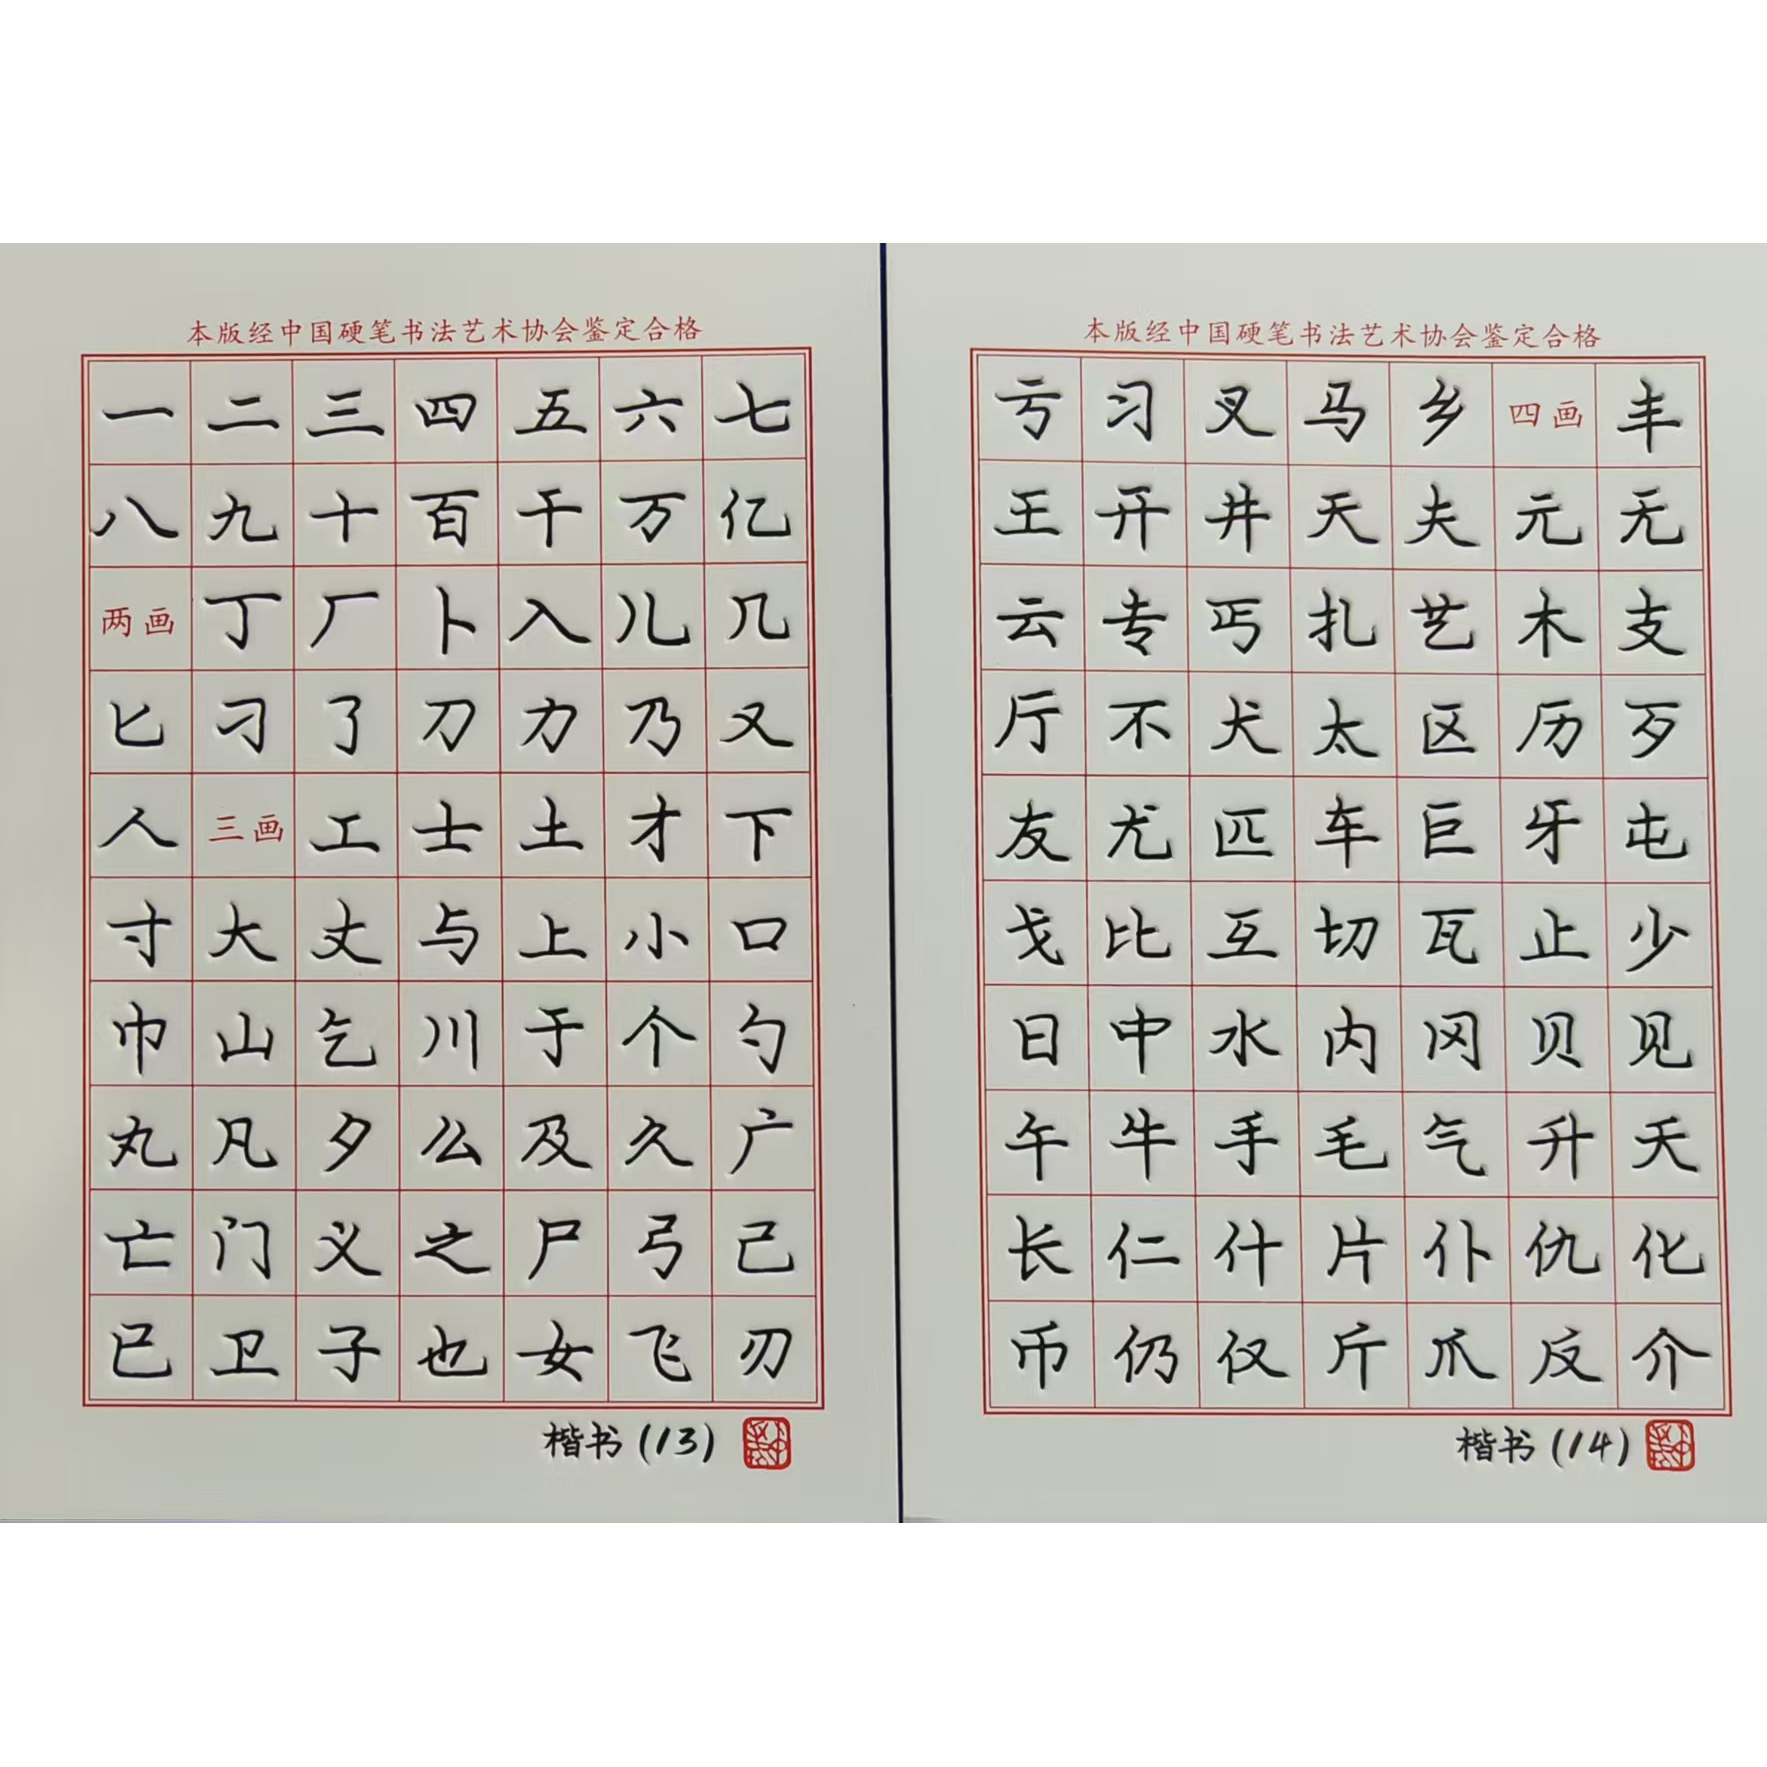 本版经中国硬笔书法艺术协会鉴定合格
一二三四五六七
八九十百千万亿
两画丁厂卜入儿几
匕刁了刀力乃又
人三画工士土才下
寸大丈与上小口
巾山乞川于个勺
丸凡夕么及久广
亡门义之尸弓己
已卫子也女飞刃
楷书(13)
本版经中国硬笔书法艺术协会鉴定合格
亏习叉马乡四画丰
王开井天夫元无
云专丐扎艺木支
厅不犬太区历歹
友尤匹车巨牙屯
戈比互切瓦止少
日中水内冈贝见
午牛手毛气升夭
长仁什片仆仇化
币仍仅斤爪反介
楷书(14)